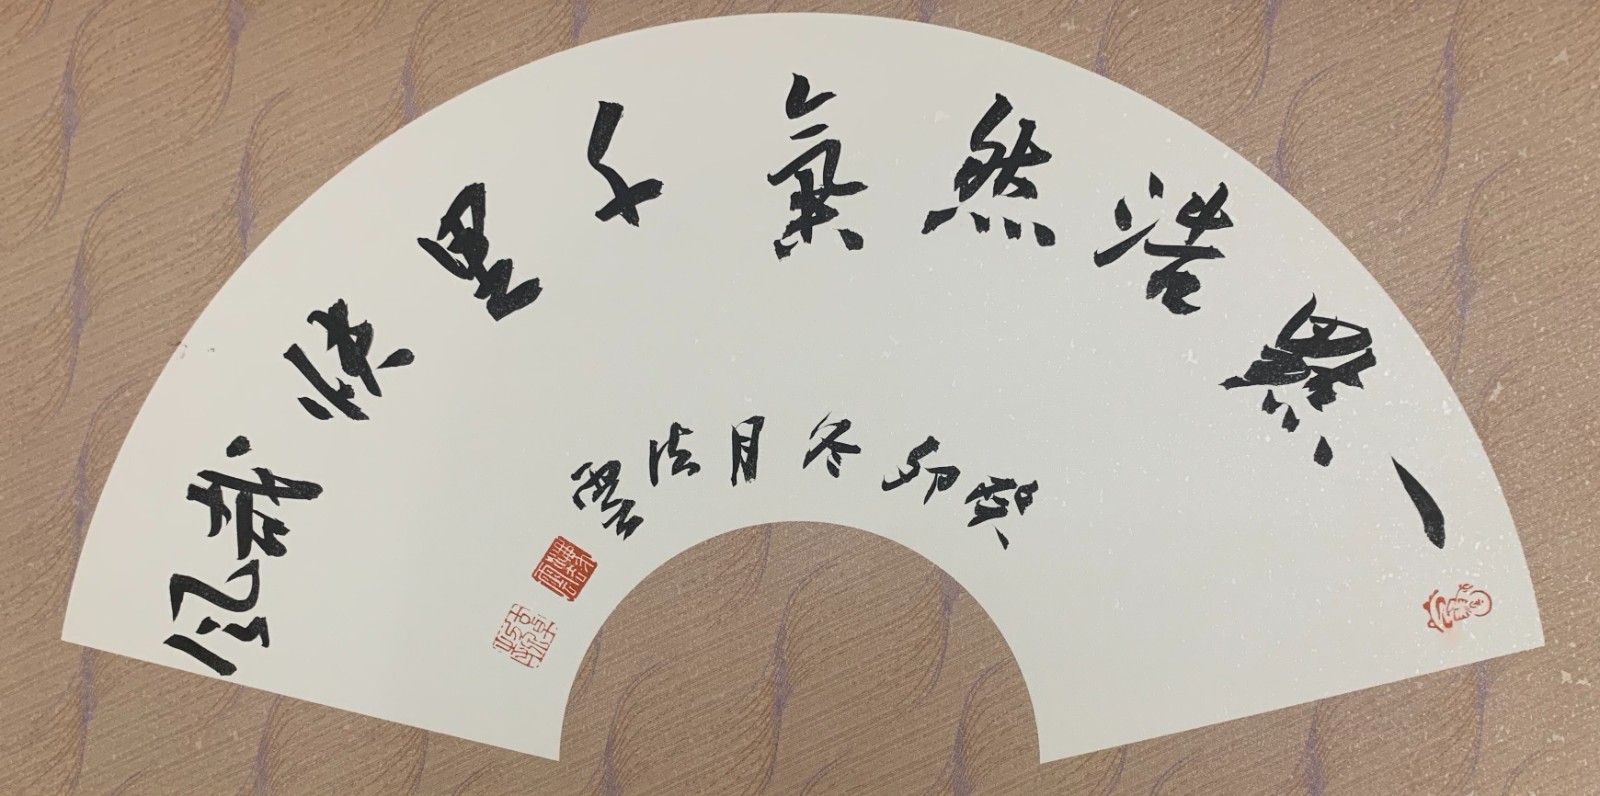 一點浩然氣千里快哉風
癸卯冬月法雲